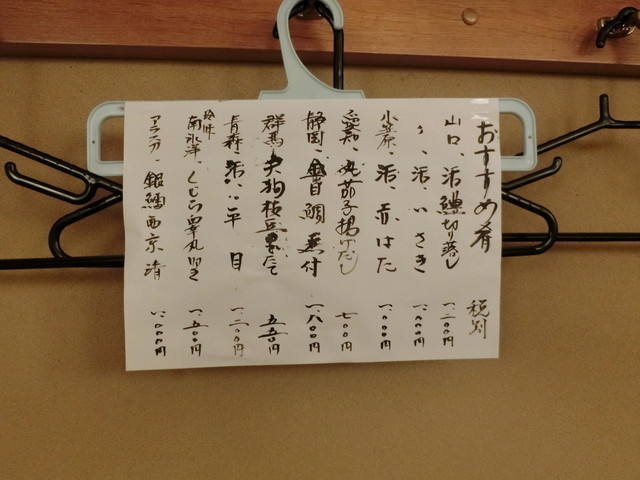 おすすめ肴 税別
山口、活鱧切り落し 一、二〇〇円
〃、活、いさき 一、〇〇〇円
小笠原、活、赤はた 一、〇〇〇円
愛知、丸茄子揚げだし 七〇〇円
静岡、金目鯛煮付 一、八〇〇円
群馬 天狗枝豆 五五〇円
青森、活、平目 一、二〇〇円
珍味
南氷洋、くじら睾丸 一、五〇〇円
アラスカ、銀鱈西京漬 一、〇〇〇円